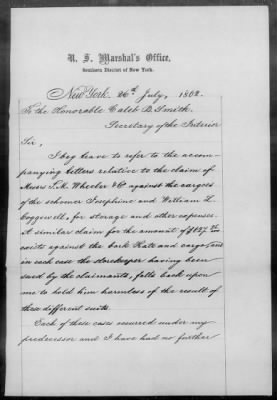 U. S. Marshal's Office,
Southern District of New York.
New York. 26th July, 1862.
To the Honorable Caleb B. Smith.
Secretary of the Interior
Sir,
I beg leave to refer to the accom-
panying letters relative to the claim of
Messrs J. M. Wheeler & Co against the cargoes
of the schooner Josephine and William L.
Coggswell, for storage and other expenses.
A similar claim for the amount of $827
exists against the bark Kate and cargo, and
in each case the storekeeper having been
sued by the claimants, falls back upon
me to hold him harmless of the result of
these different suits.
Each of these cases occurred under my
predecessor and I have had no further